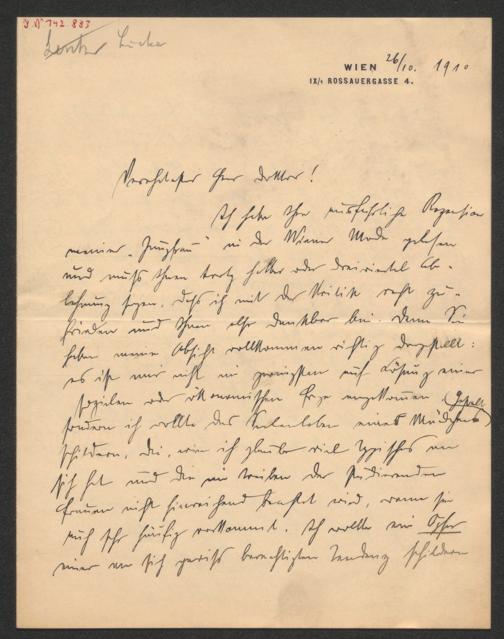 J. N. 142.883
Lucka
WIEN 26/10. 1910
IX/1 ROSSAUERGASSE 4.
Verehrtester Herr Doktor!
Ich habe Ihre ausführliche Rezension
meiner „Jungfrau“ in der Wiener Mode gelesen
und muß Ihnen trotz halber oder dreiviertel Ab-
lehnung sagen, daß ich mit der Kritik recht zu-
frieden und Ihnen sehr dankbar bin. Denn Sie
haben meine Absicht vollkommen richtig dargestellt:
es ist mir nicht im geringsten auf Lösung einer
sozialen oder ökonomischen Frage angekommen
sondern ich wollte das Seelenleben eines Mädchens
schildern, die, wie ich glaube viel Typisches an
sich hat und die im Treiben der studierenden
Frauen nicht hinreichend beachtet wird, wenn sie
auch sehr häufig vorkommt. Ich wollte ein Opfer
einer an sich gewiß berechtigten Tendenz schildern